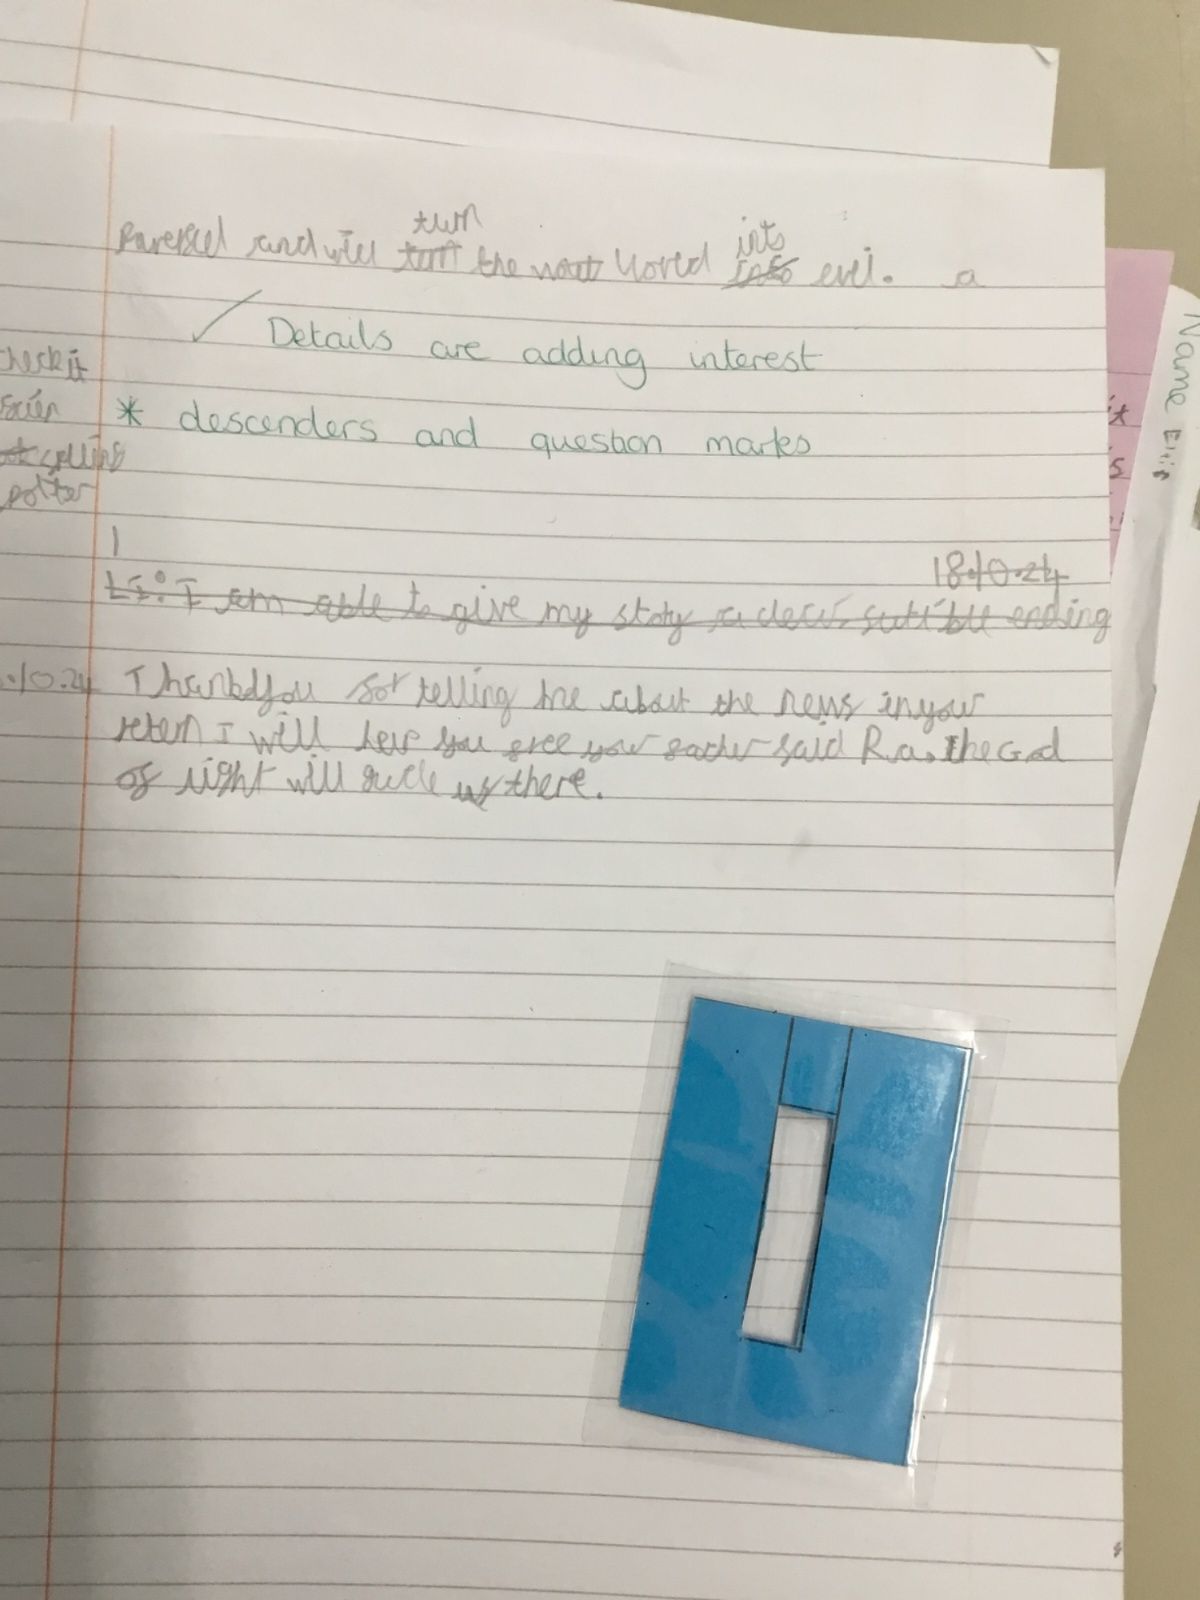 turn into
and will turt the wout Uorld into evil. a
✓ Details are adding interest
* descenders and question marks
check it
spelling
potter
18.10.24
LI: I am able to give my story a clear sutible ending
.10.24 Thankyou for telling me about the news in your
retern I will help you free your father said Ra. The God
of light will guide us there.
Name Ellis